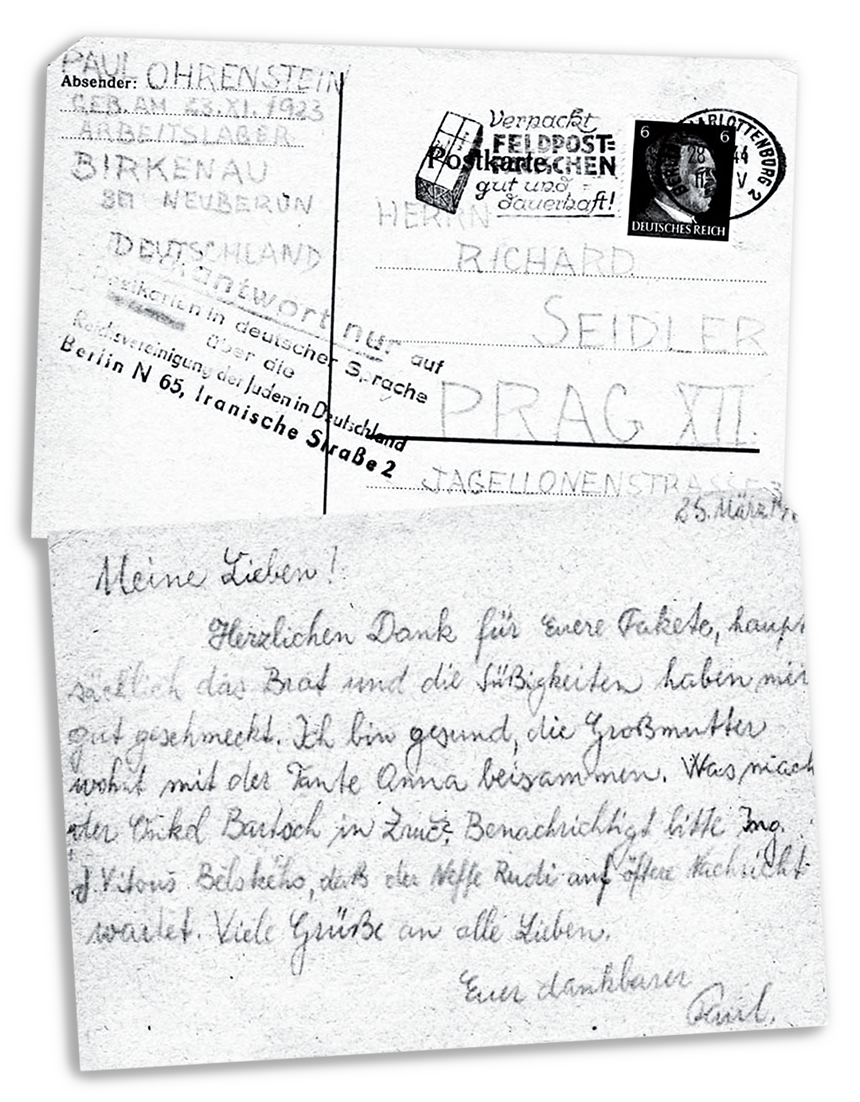 PAUL OHRENSTEIN
Absender:
GEB. AM 23.XI.1923
ARBEITSLAGER
BIRKENAU
BEI NEUBERUN
DEUTSCHLAND
Verpackt
FELDPOST=
PÄCKCHEN
gut und
dauerhaft!
Postkarte
6 6
DEUTSCHES REICH
CHARLOTTENBURG 2
HERRN
RICHARD
SEIDLER
PRAG XII.
JAGELLONENSTRASSE
Rückantwort nur auf
Postkarten in deutscher Sprache
über die
Reichsvereinigung der Juden in Deutschland
Berlin N 65, Iranische Straße 2
25. März
Meine Lieben!
Herzlichen Dank für Euere Pakete, haupt
sächlich das Brot und die Süßigkeiten haben mir
gut geschmeckt. Ich bin gesund, die Großmutter
wohnt mit der Tante Anna beisammen. Was mach
der Onkel Bartoch in Zruč? Benachrichtigt bitte Ing.
J. Vitouš Bělského, daß der Neffe Rudi auf öftere Nachricht
wartet. Viele Grüße an alle Lieben.
Euer dankbarer
Paul.